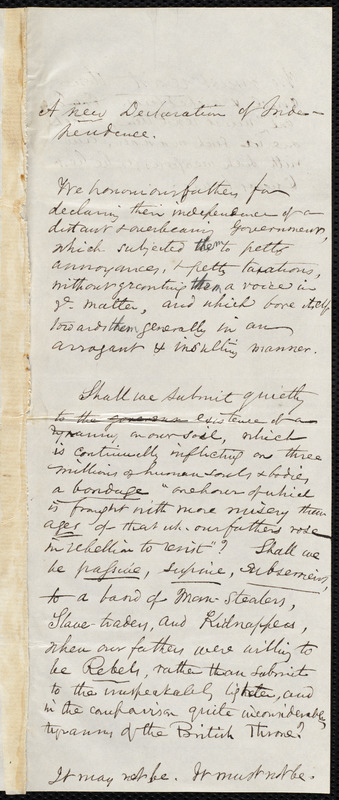 A new Declaration of Inde-
pendence.
We honor our fathers for
declaring their independence of a
distant & overbearing Government,
which subjected them to petty
annoyances, & petty taxations,
without granting them a voice in
ye matter, and which bore itself
towards them generally in an
arrogant & insulting manner.
Shall we submit quietly
to the existence of a
tyranny on our soil, which
is continually inflicting on three
millions of human souls & bodies,
a bondage "one hour of which
is fraught with more misery than
ages of that wh. our fathers rose
in rebellion to resist"? Shall we
be passive, supine, subservient,
to a band of Man-Stealers,
Slave-traders, and Kidnappers,
when our fathers were willing to
be Rebels, rather than submit
to the unspeakably lighter, and
in the comparison quite inconsiderable
tyranny of the British Throne?
It may not be. It must not be.